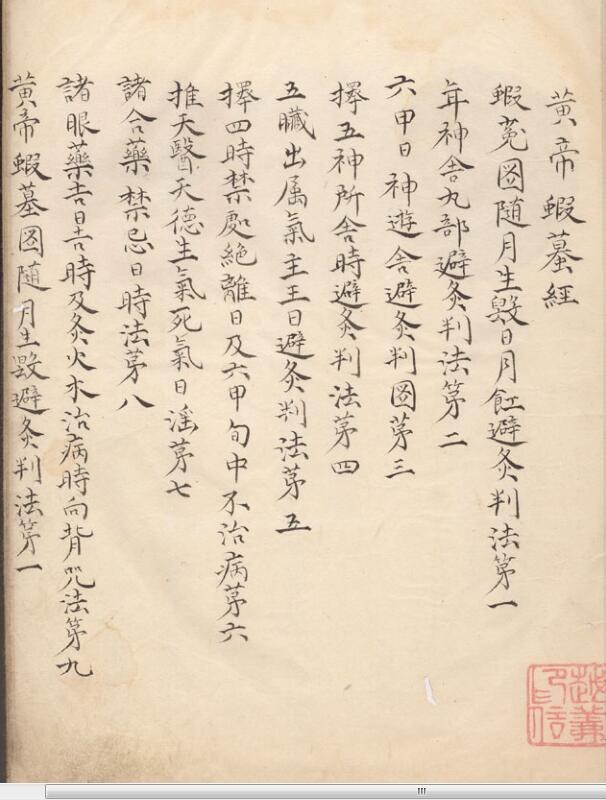 黄帝蝦蟇経
蝦菟圖随月生毀日月虹避灸判法第一
年神舎九部避灸判法第二
六甲日神遊舎避灸判圖第三
擇五神所舎時避灸判法第四
五臓出属氣主王日避灸判法第五
擇四時禁處絶離日及六甲旬中不治病第六
推天醫天德生氣死氣日謡第七
諸合藥禁忌日時法第八
諸眼藥吉日吉時及灸火木治病時向背咒法第九
黄帝蝦墓圖随月生毀避灸判法第一